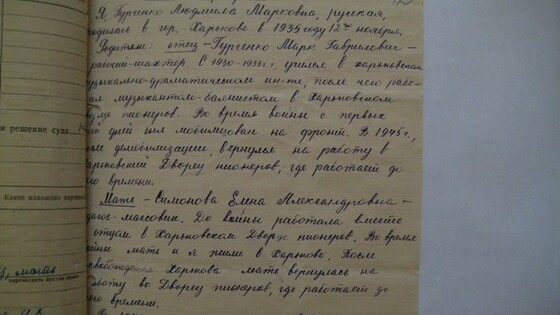 Я, Гурченко Людмила Марковна, русская,
родилась в гор. Харькове в 1935 году 12го ноября.
Родители: отец – Гурченко Марк Гаврилович –
рабочий-шахтер. С 1930-1933 г. учился в харьковском
музыкально-драматическом ин-те, после чего рабо-
тал музыкантом-баянистом в Харьковском
Дворце пионеров. Во время войны с первых
дней был мобилизован на фронт. В 1945 г.,
после демобилизации, вернулся на работу в
Харьковский Дворец пионеров, где работает до
сего времени.
Мать – Симонова Елена Александровна –
педагог-массовик. До войны работала вместе
с отцом в Харьковском Дворце пионеров. Во время
войны мать и я жили в Харькове. После
освобождения Харькова мать вернулась на
работу во Дворец пионеров, где работает до
сего времени.
и решение суда
Какие изложено
мать